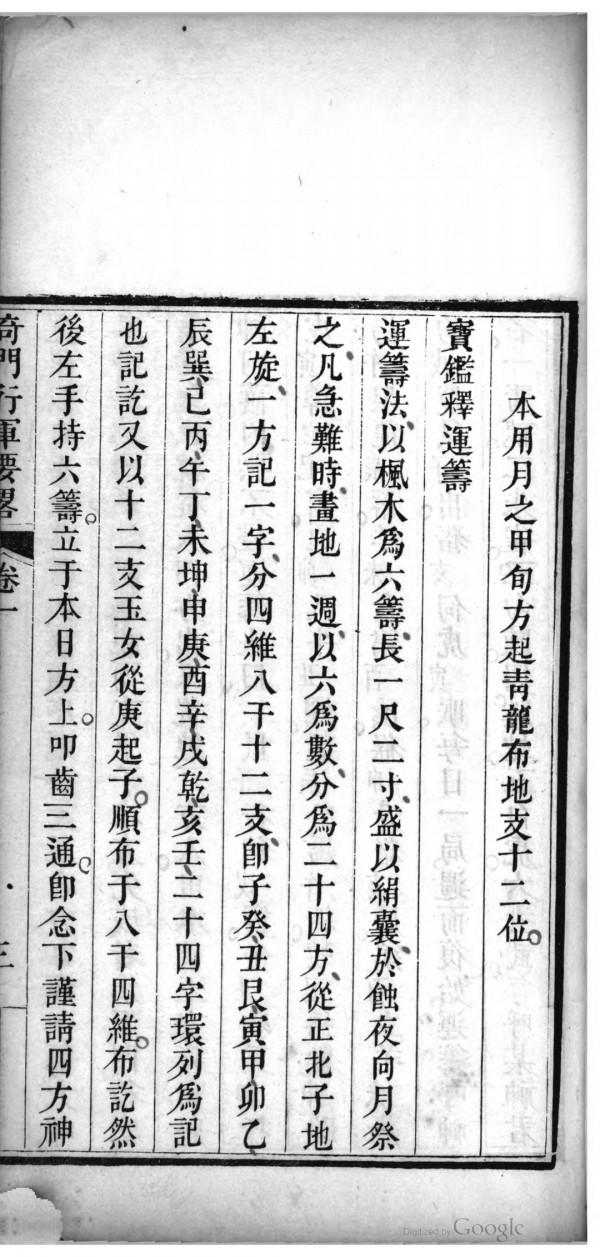 本用月之甲旬方起青龍布地支十二位。
寶鑑釋運籌
運籌法、以楓木爲六籌、長一尺二寸、盛以絹囊、於蝕夜向月祭
之、凡急難時、畫地一週、以六爲數、分爲二十四方、從正北子地
左旋、一方記一字、分四維八干十二支、卽子癸、丑艮、寅甲、卯乙、
辰巽、己丙、午丁、未坤、申庚、酉辛、戌乾、亥壬、二十四字環列爲記
也記訖又以十二支玉女從庚起子。順布于八干四維。布訖然
後左手持六籌。立于本日方上。叩齒三通。卽念下謹請四方神
奇門行軍要畧 卷一 三
Digitized by Google